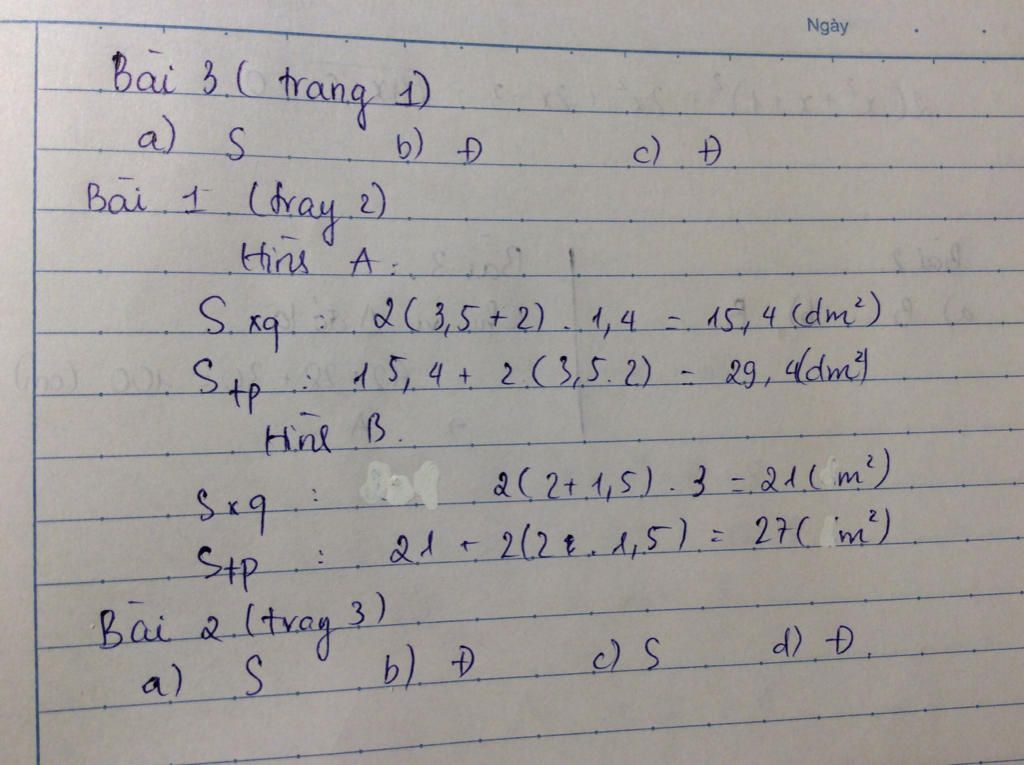 Ngày
Bài 3 ( trang 1)
a) S b) Đ c) Đ
Bài 1 (tray 2)
Hình A :
S xq : 2(3,5+2) . 1,4 = 15,4(dm²)
Stp : 15,4 + 2(3,5.2) = 29,4(dm²)
Hình B.
Sxq : 2(2+1,5) . 3 = 21( m²)
Stp : 21 + 2(2 . 1,5) = 27( m²)
Bài 2 (tray 3)
a) S b) Đ c) S d) Đ